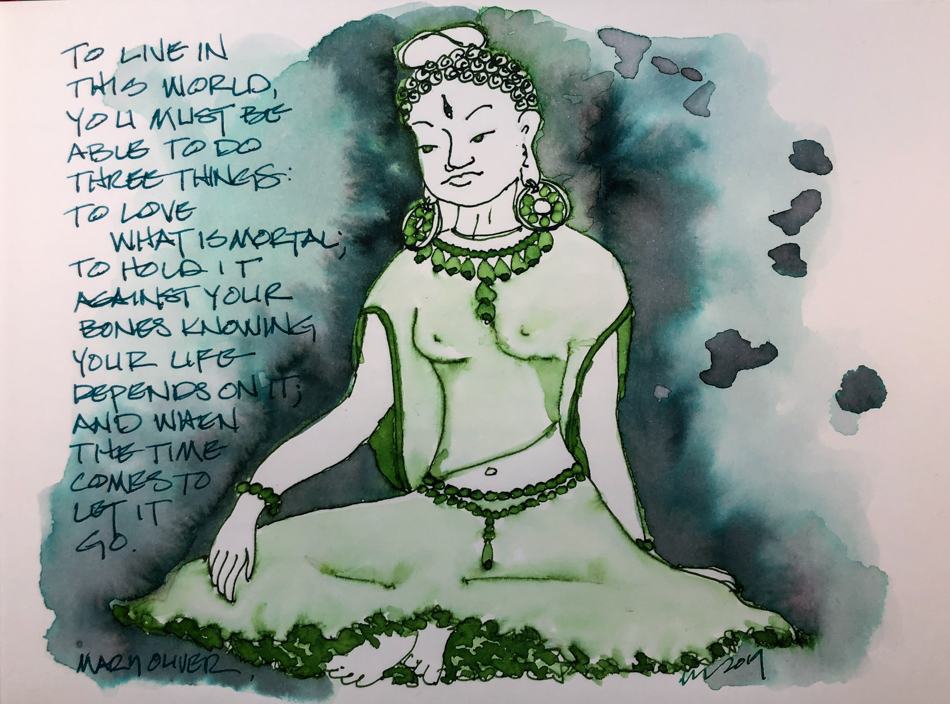 TO LIVE IN
THIS WORLD,
YOU MUST BE
ABLE TO DO
THREE THINGS:
TO LOVE
WHAT IS MORTAL;
TO HOLD IT
AGAINST YOUR
BONES KNOWING
YOUR LIFE
DEPENDS ON IT;
AND WHEN
THE TIME
COMES TO
LET IT
GO.
MARY OLIVER,